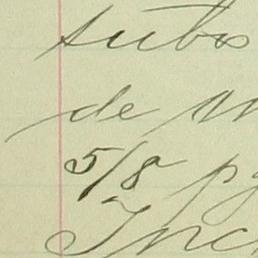 tubos
de
5/8 pg
Inc